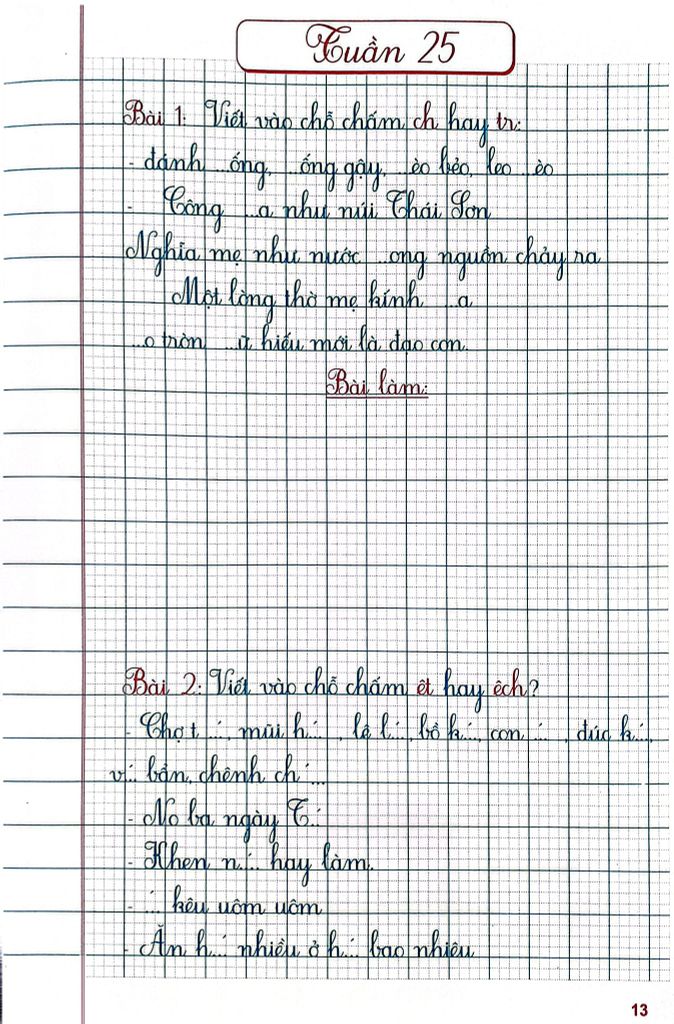 Tuần 25
Bài 1: Viết vào chỗ chấm ch hay tr:
- đánh ...ống, ...ống gậy, ...èo bẻo, leo ...èo
- Công ...a như núi Thái Sơn
Nghĩa mẹ như nước ...ong nguồn chảy ra
Một lòng thờ mẹ kính ...a
...o tròn ...ữ hiếu mới là đạo con.
Bài làm:
Bài 2: Viết vào chỗ chấm êt hay êch?
- Chợ t...́, mũi h...́, lê l...́, bồ k...́, con ...́, đúc k...́,
v...́ bẩn, chênh ch...́...
- No ba ngày T...́
- Khen n...́ hay làm.
- ...́ kêu uôm uôm
- Ăn h...́ nhiều ở h...́ bao nhiêu
13